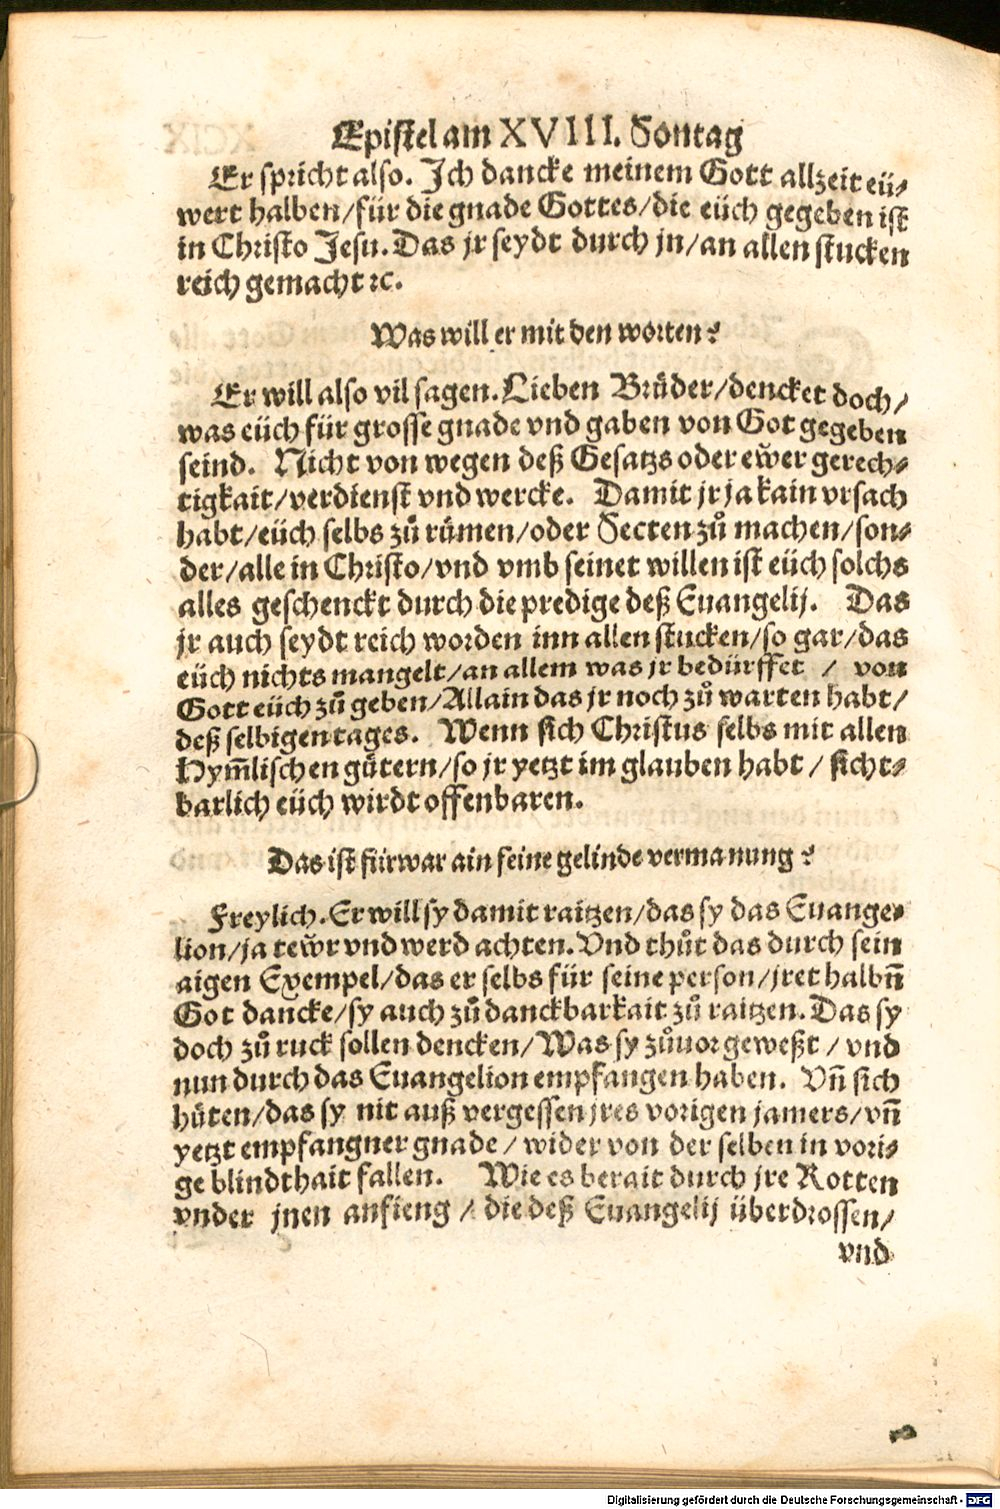 Epistel am XVIII. Sontag
Er spricht also. Ich dancke meinem Gott allzeit eü⸗
wert halben/für die gnade Gottes/die eüch gegeben ist
in Christo Jesu. Das jr seydt durch jn/an allen stucken
reich gemacht ꝛc.
Was will er mit den worten?
Er will also vil sagen. Lieben Brüder/dencket doch/
was eüch für grosse gnade vnd gaben von Got gegeben
seind. Nicht von wegen deß Gesatzs oder ewer gerech⸗
tigkait/verdienst vnd wercke. Damit jr ja kain vrsach
habt/eüch selbs zů rümen/oder Secten zů machen/son⸗
der/alle in Christo/vnd vmb seinet willen ist eüch solchs
alles geschenckt durch die predige deß Euangelij. Das
jr auch seydt reich worden inn allen stucken/so gar/das
eüch nichts mangelt/an allem was jr bedürffet / von
Gott eüch zů geben/Allain das jr noch zů warten habt/
deß selbigen tages. Wenn sich Christus selbs mit allen
Hym̃lischen gütern/so jr yetzt im glauben habt / sicht⸗
barlich eüch wirdt offenbaren.
Das ist fürwar ain feine gelinde vermanung?
Freylich. Er will sy damit raitzen/das sy das Euange⸗
lion/ja tewr vnd werd achten. Vnd thůt das durch sein
aigen Exempel/das er selbs für seine person/jret halbn̄
Got dancke/sy auch zů danckbarkait zů raitzen. Das sy
doch zů ruck sollen dencken/Was sy zůuor geweßt / vnd
nun durch das Euangelion empfangen haben. Vn̄ sich
hüten/das sy nit auß vergessen jres vorigen jamers/vn̄
yetzt empfangner gnade / wider von der selben in vori⸗
ge blindthait fallen. Wie es berait durch jre Rotten
vnder jnen anfieng / die deß Euangelij überdrossen/
vnd
Digitalisierung gefördert durch die Deutsche Forschungsgemeinschaft - DFG